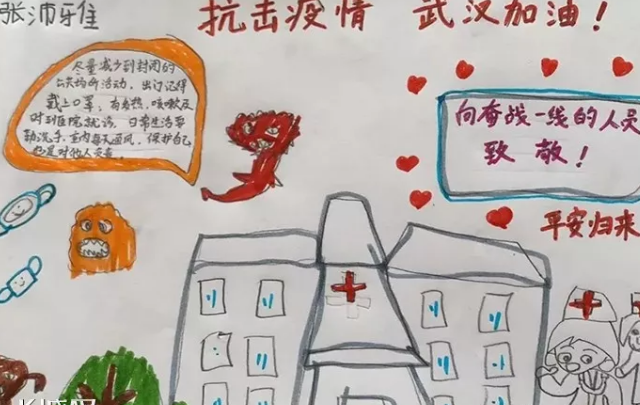 张沛雅
抗击疫情 武汉加油！
尽量减少到封闭的
公共场所活动，出门记得
戴上口罩，有发热，咳嗽及
时到医院就诊，日常生活要
勤洗手，室内每天通风，保护自己
也是对他人负责。
向奋战一线的人员
致敬！
平安归来